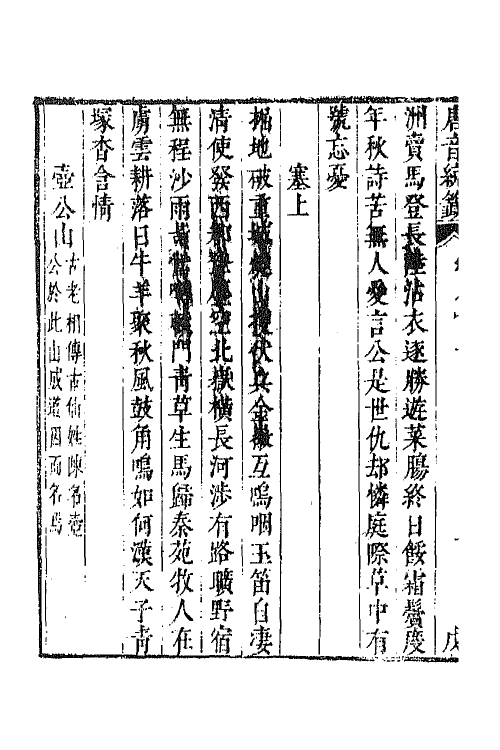 唐音統籖
洲賣馬登長陸沾衣逐勝遊菜腸終日餒霜鬢度
年秋詩苦無人愛言公是世仇却憐庭際草中有
號忘憂
塞上
掘地破重城燒山搜伏兵金徽互嗚咽玉笛自凄
清使發西都空北嶽橫長河渉有路曠野宿
無程沙雨門青草生馬歸秦苑牧人在
虜雲耕落日牛羊聚秋風鼓角鳴如何漢天子青
塚杳含情
壺公山古老相傳古仙姓陳名壺
公於此山成道因而名焉